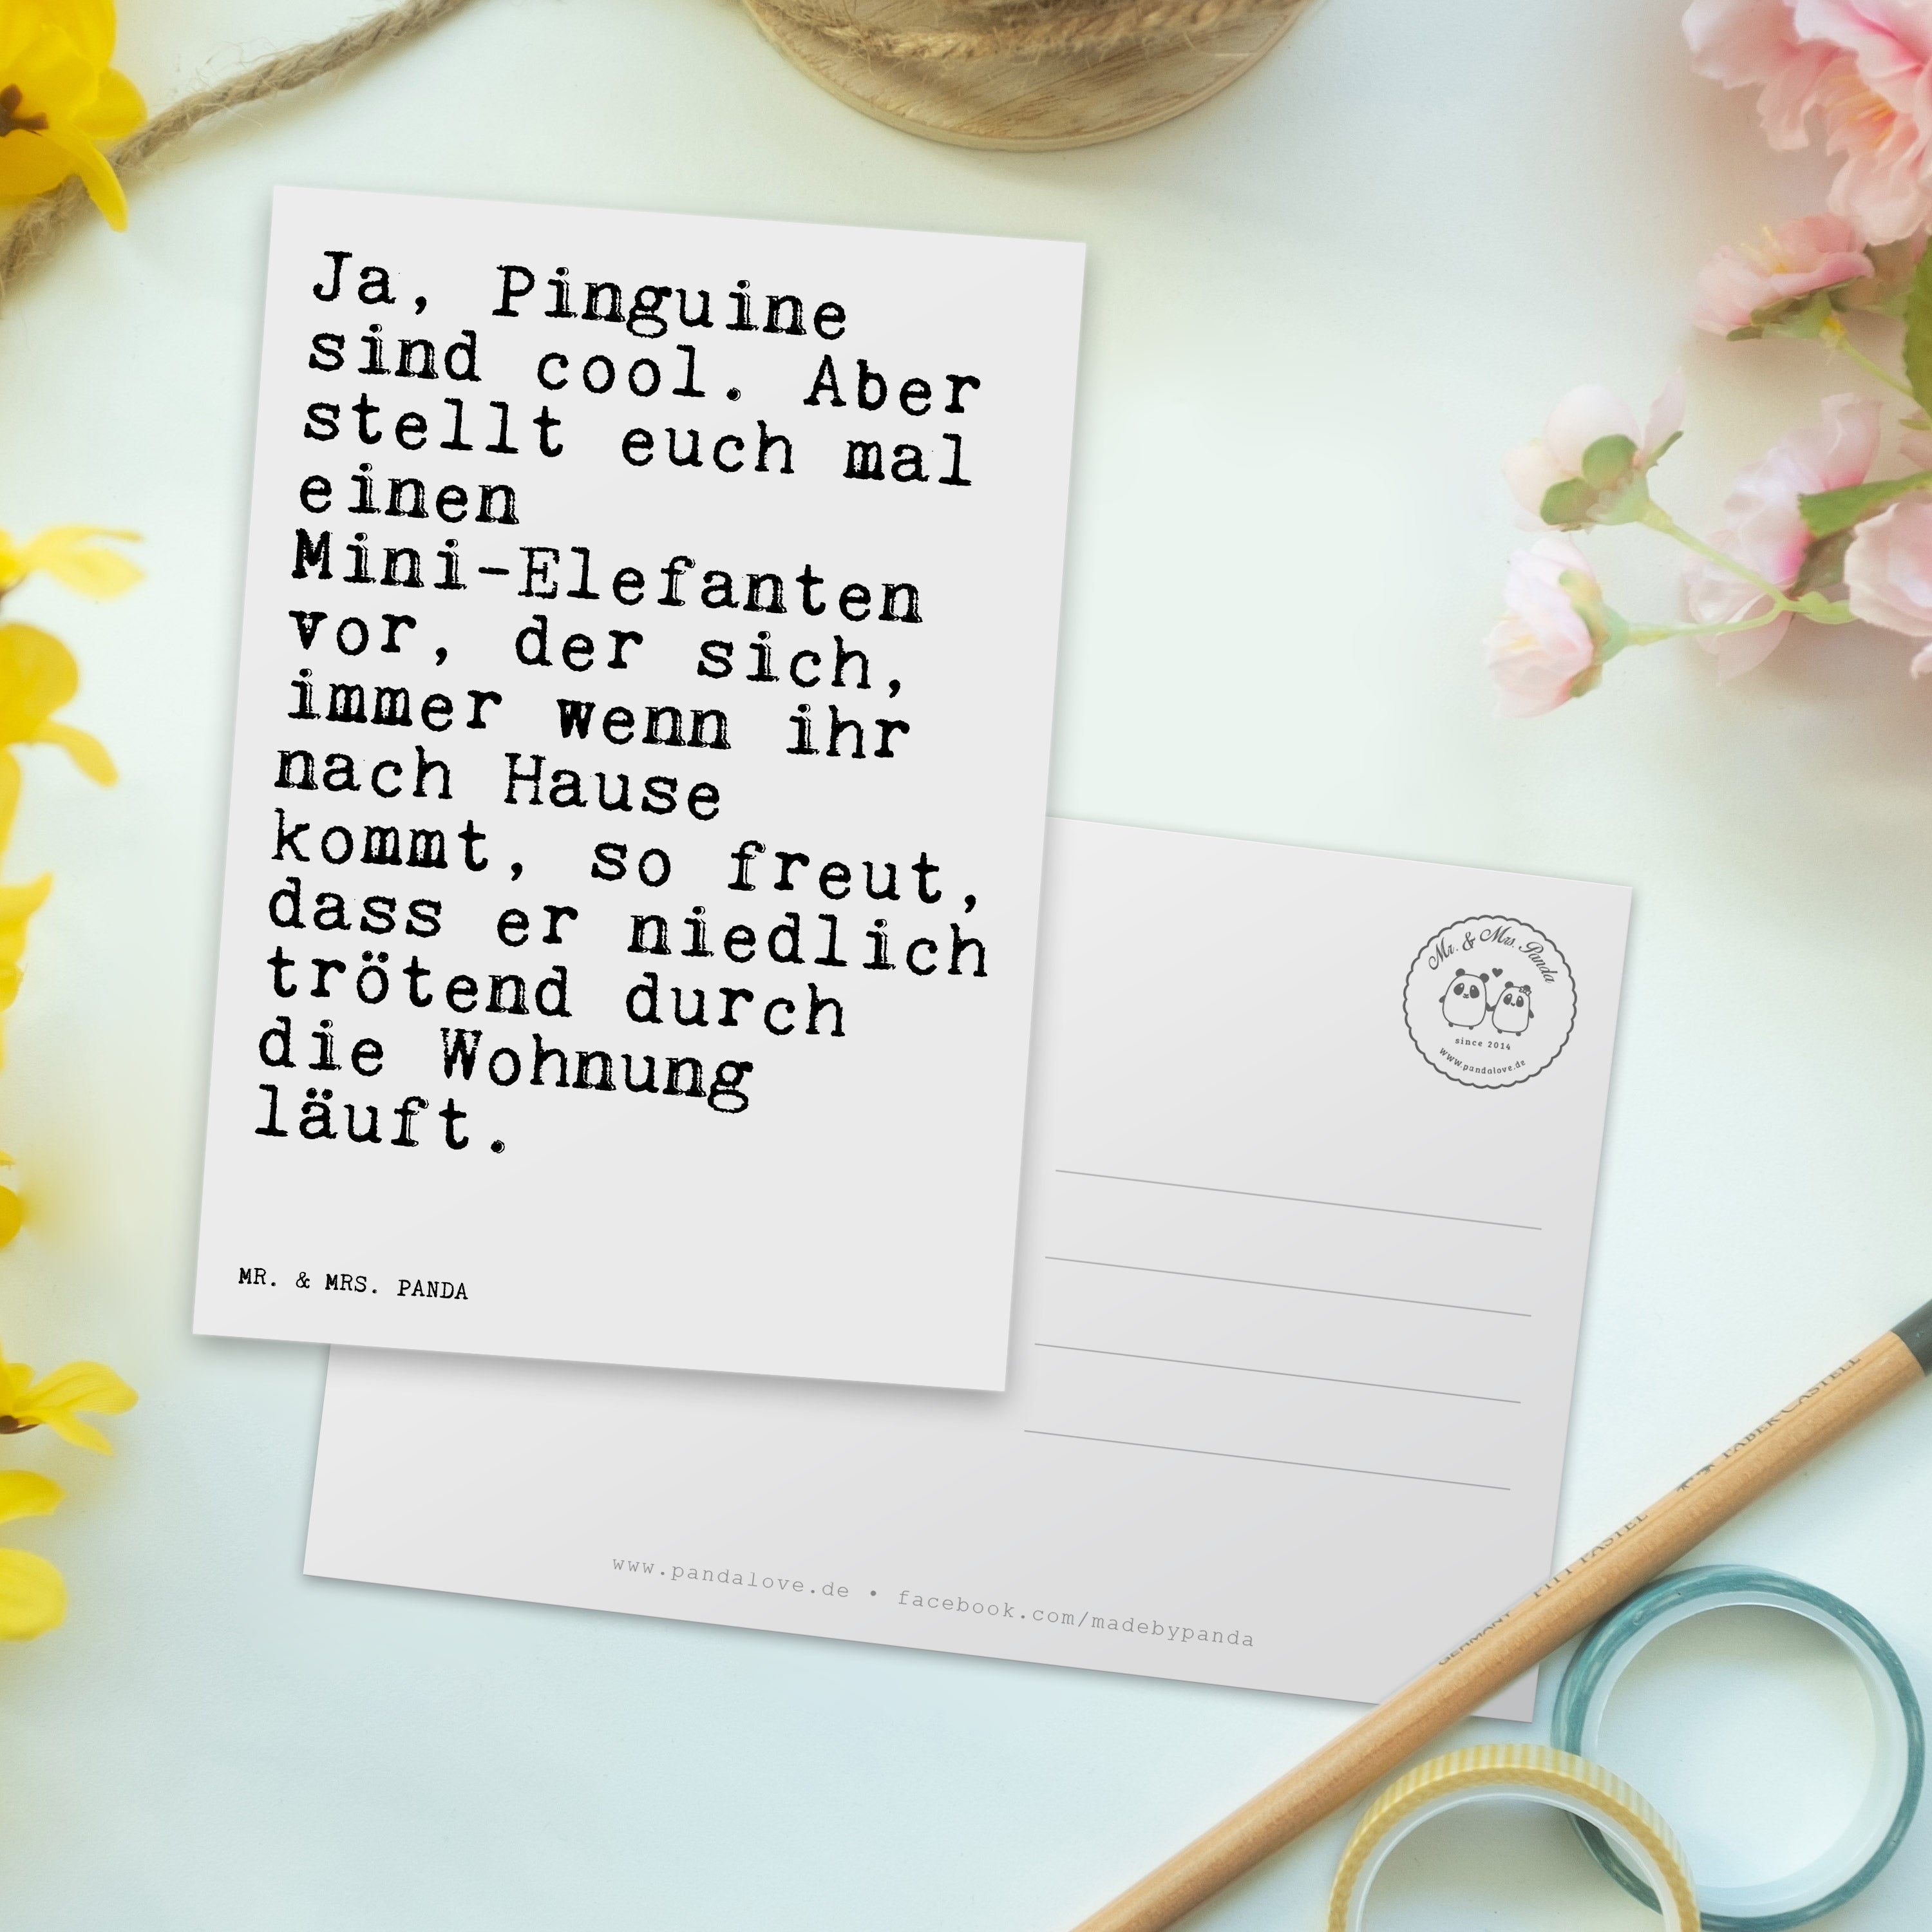 Ja, Pinguine
sind cool. Aber
stellt euch mal
einen
Mini-Elefanten
vor, der sich,
immer wenn ihr
nach Hause
kommt, so freut,
dass er niedlich
trötend durch
die Wohnung
läuft.
MR. & MRS. PANDA
Mr. & Mrs. Panda
since 2014
www.pandalove.de
www.pandalove.de • facebook.com/madebypanda
GERMANY PITT PASTEL FABER-CASTELL